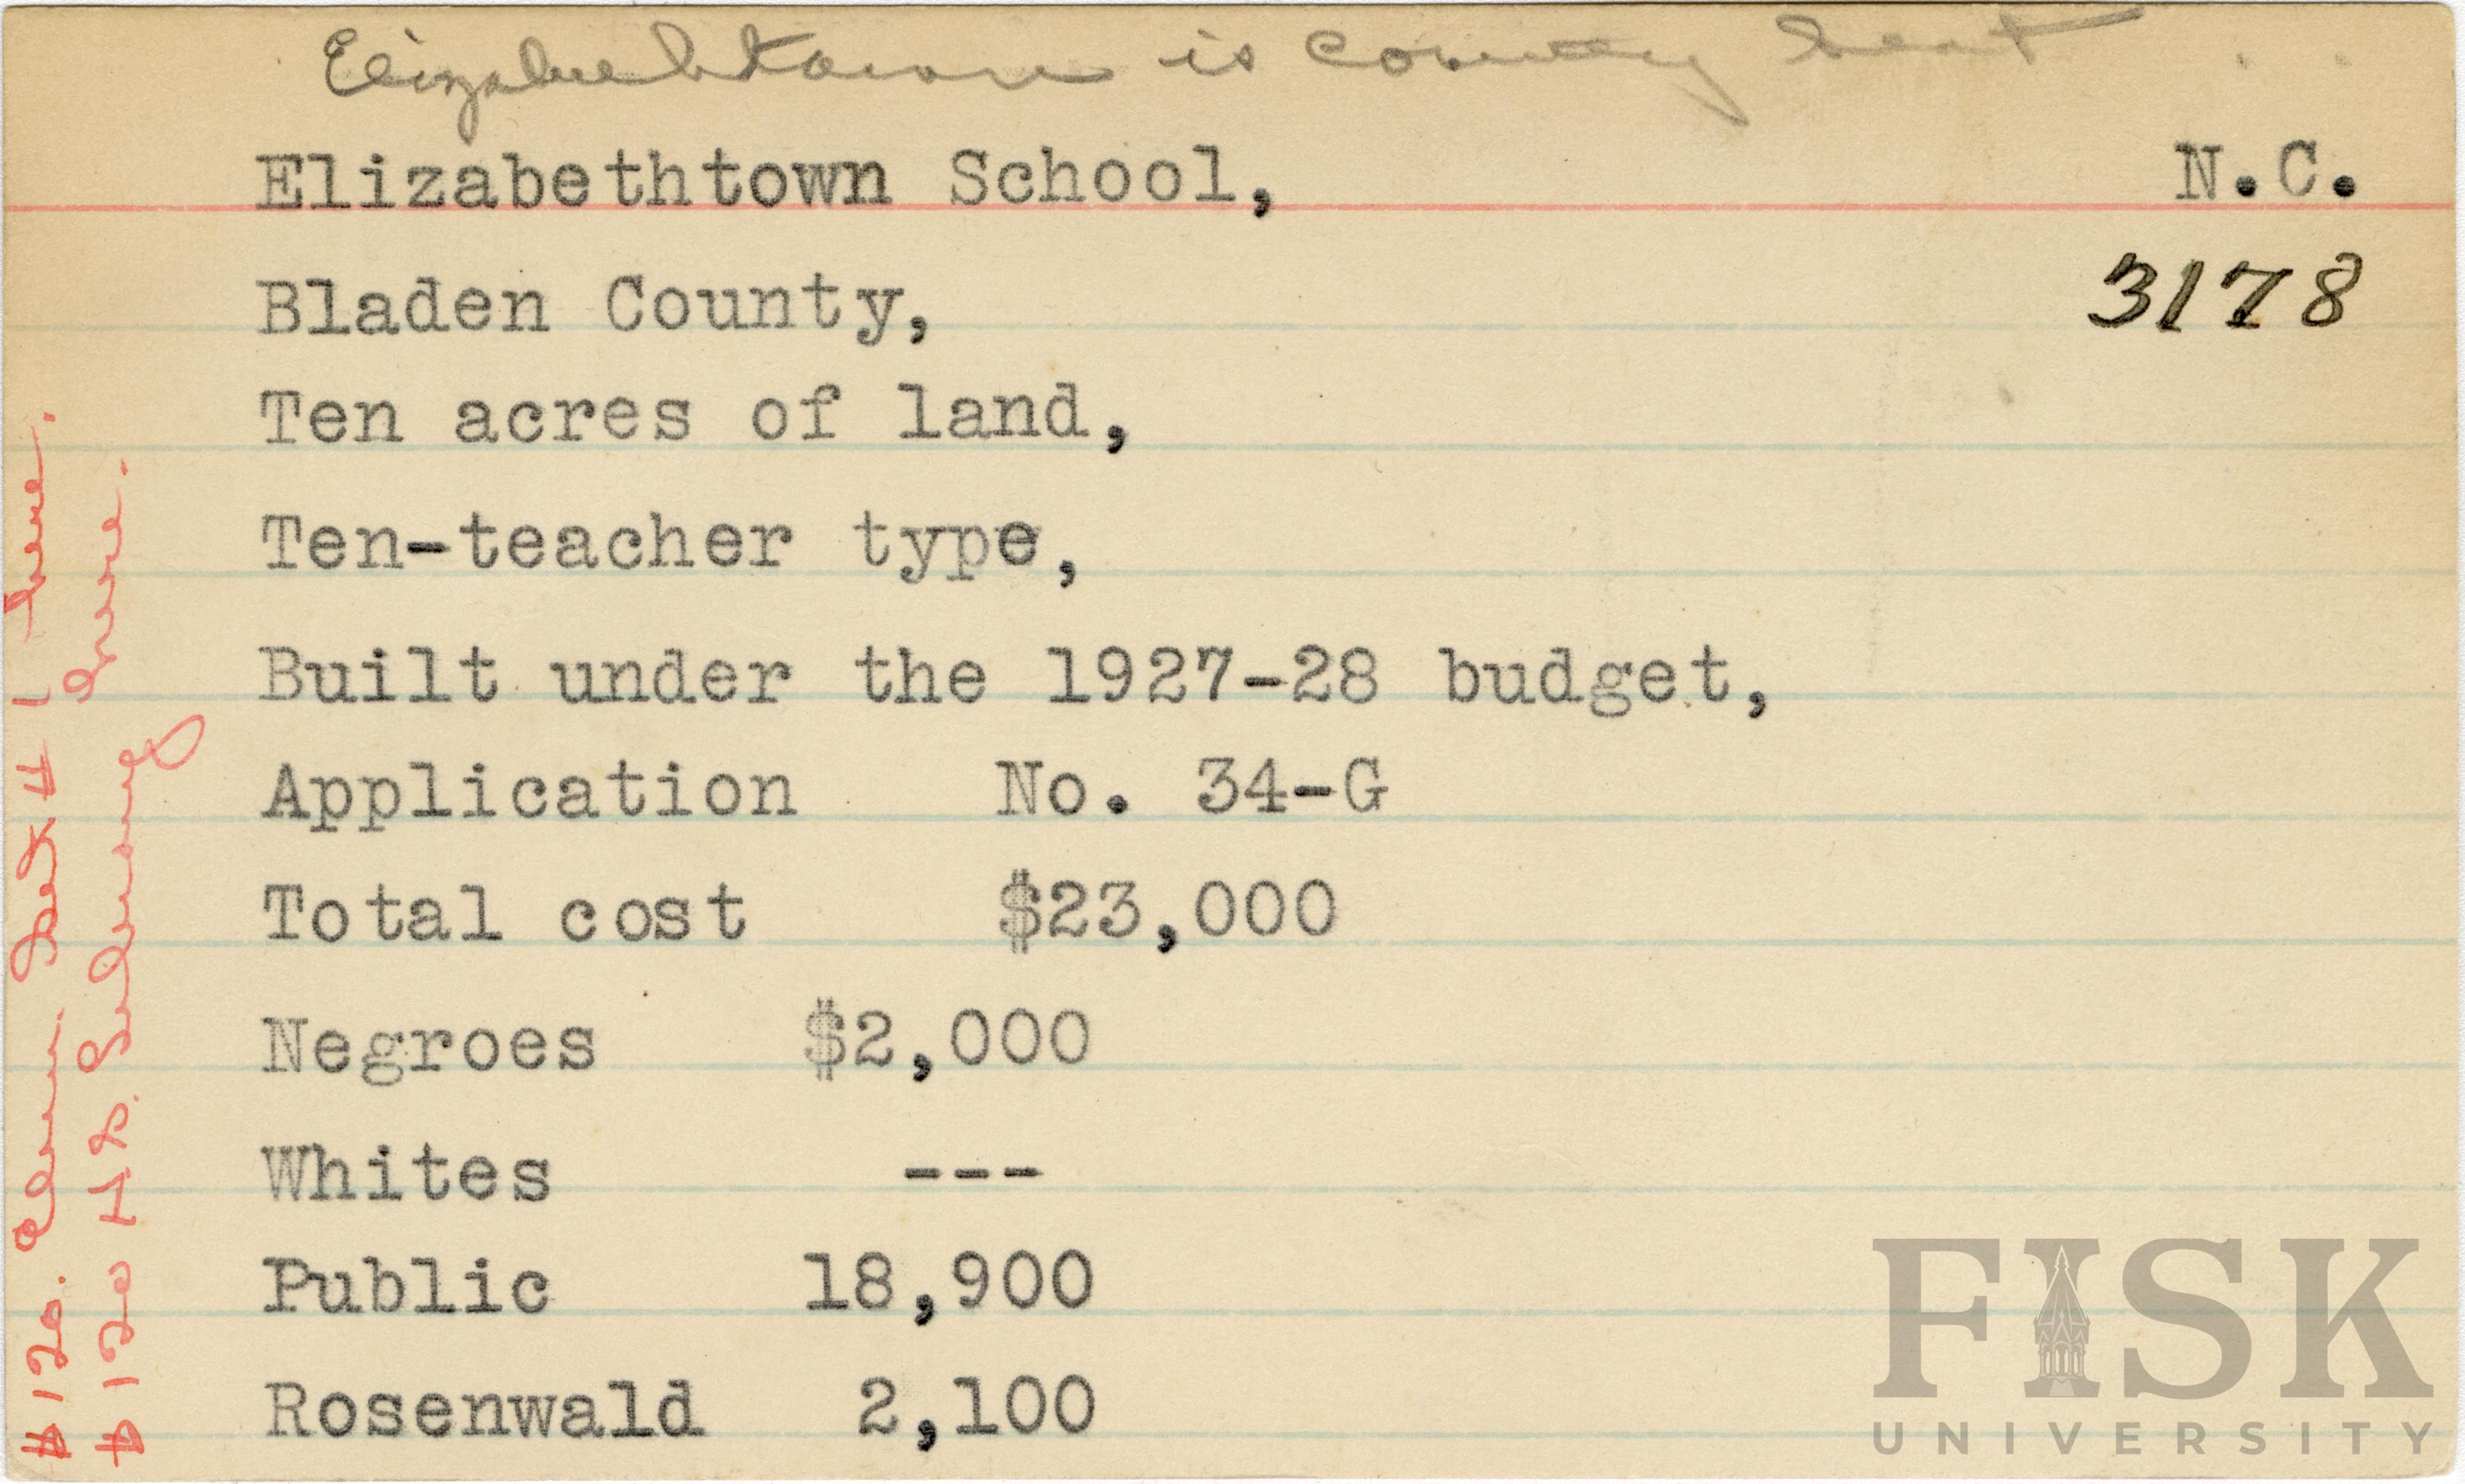 Elizabethtown is county seat
Elizabethtown School, N.C.
Bladen County, 3178
Ten acres of land,
Ten-teacher type,
Built under the 1927-28 budget,
Application No. 34-G
Total cost $23,000
Negroes $2,000
Whites ---
Public 18,900
Rosenwald 2,100
$120. Elem. Set #1 here.
$120 H.S. Library here.
FISK
UNIVERSITY